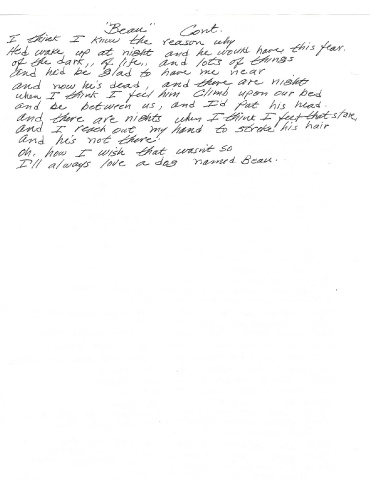 "Beau" Cont.
I think I know the reason why
He'd wake up at night and he would have this fear
of the dark,, of life,, and lots of things
and he'd be glad to have me near
and now he's dead, and there are nights
when I think I feel him Climb upon our bed
and be between us, and I'd pat his head.
and there are nights when I think I feel that stare
and I reach out my hand to stroke his hair
and he's not there
oh, how I wish that wasn't so
I'll always love a dog named Beau.